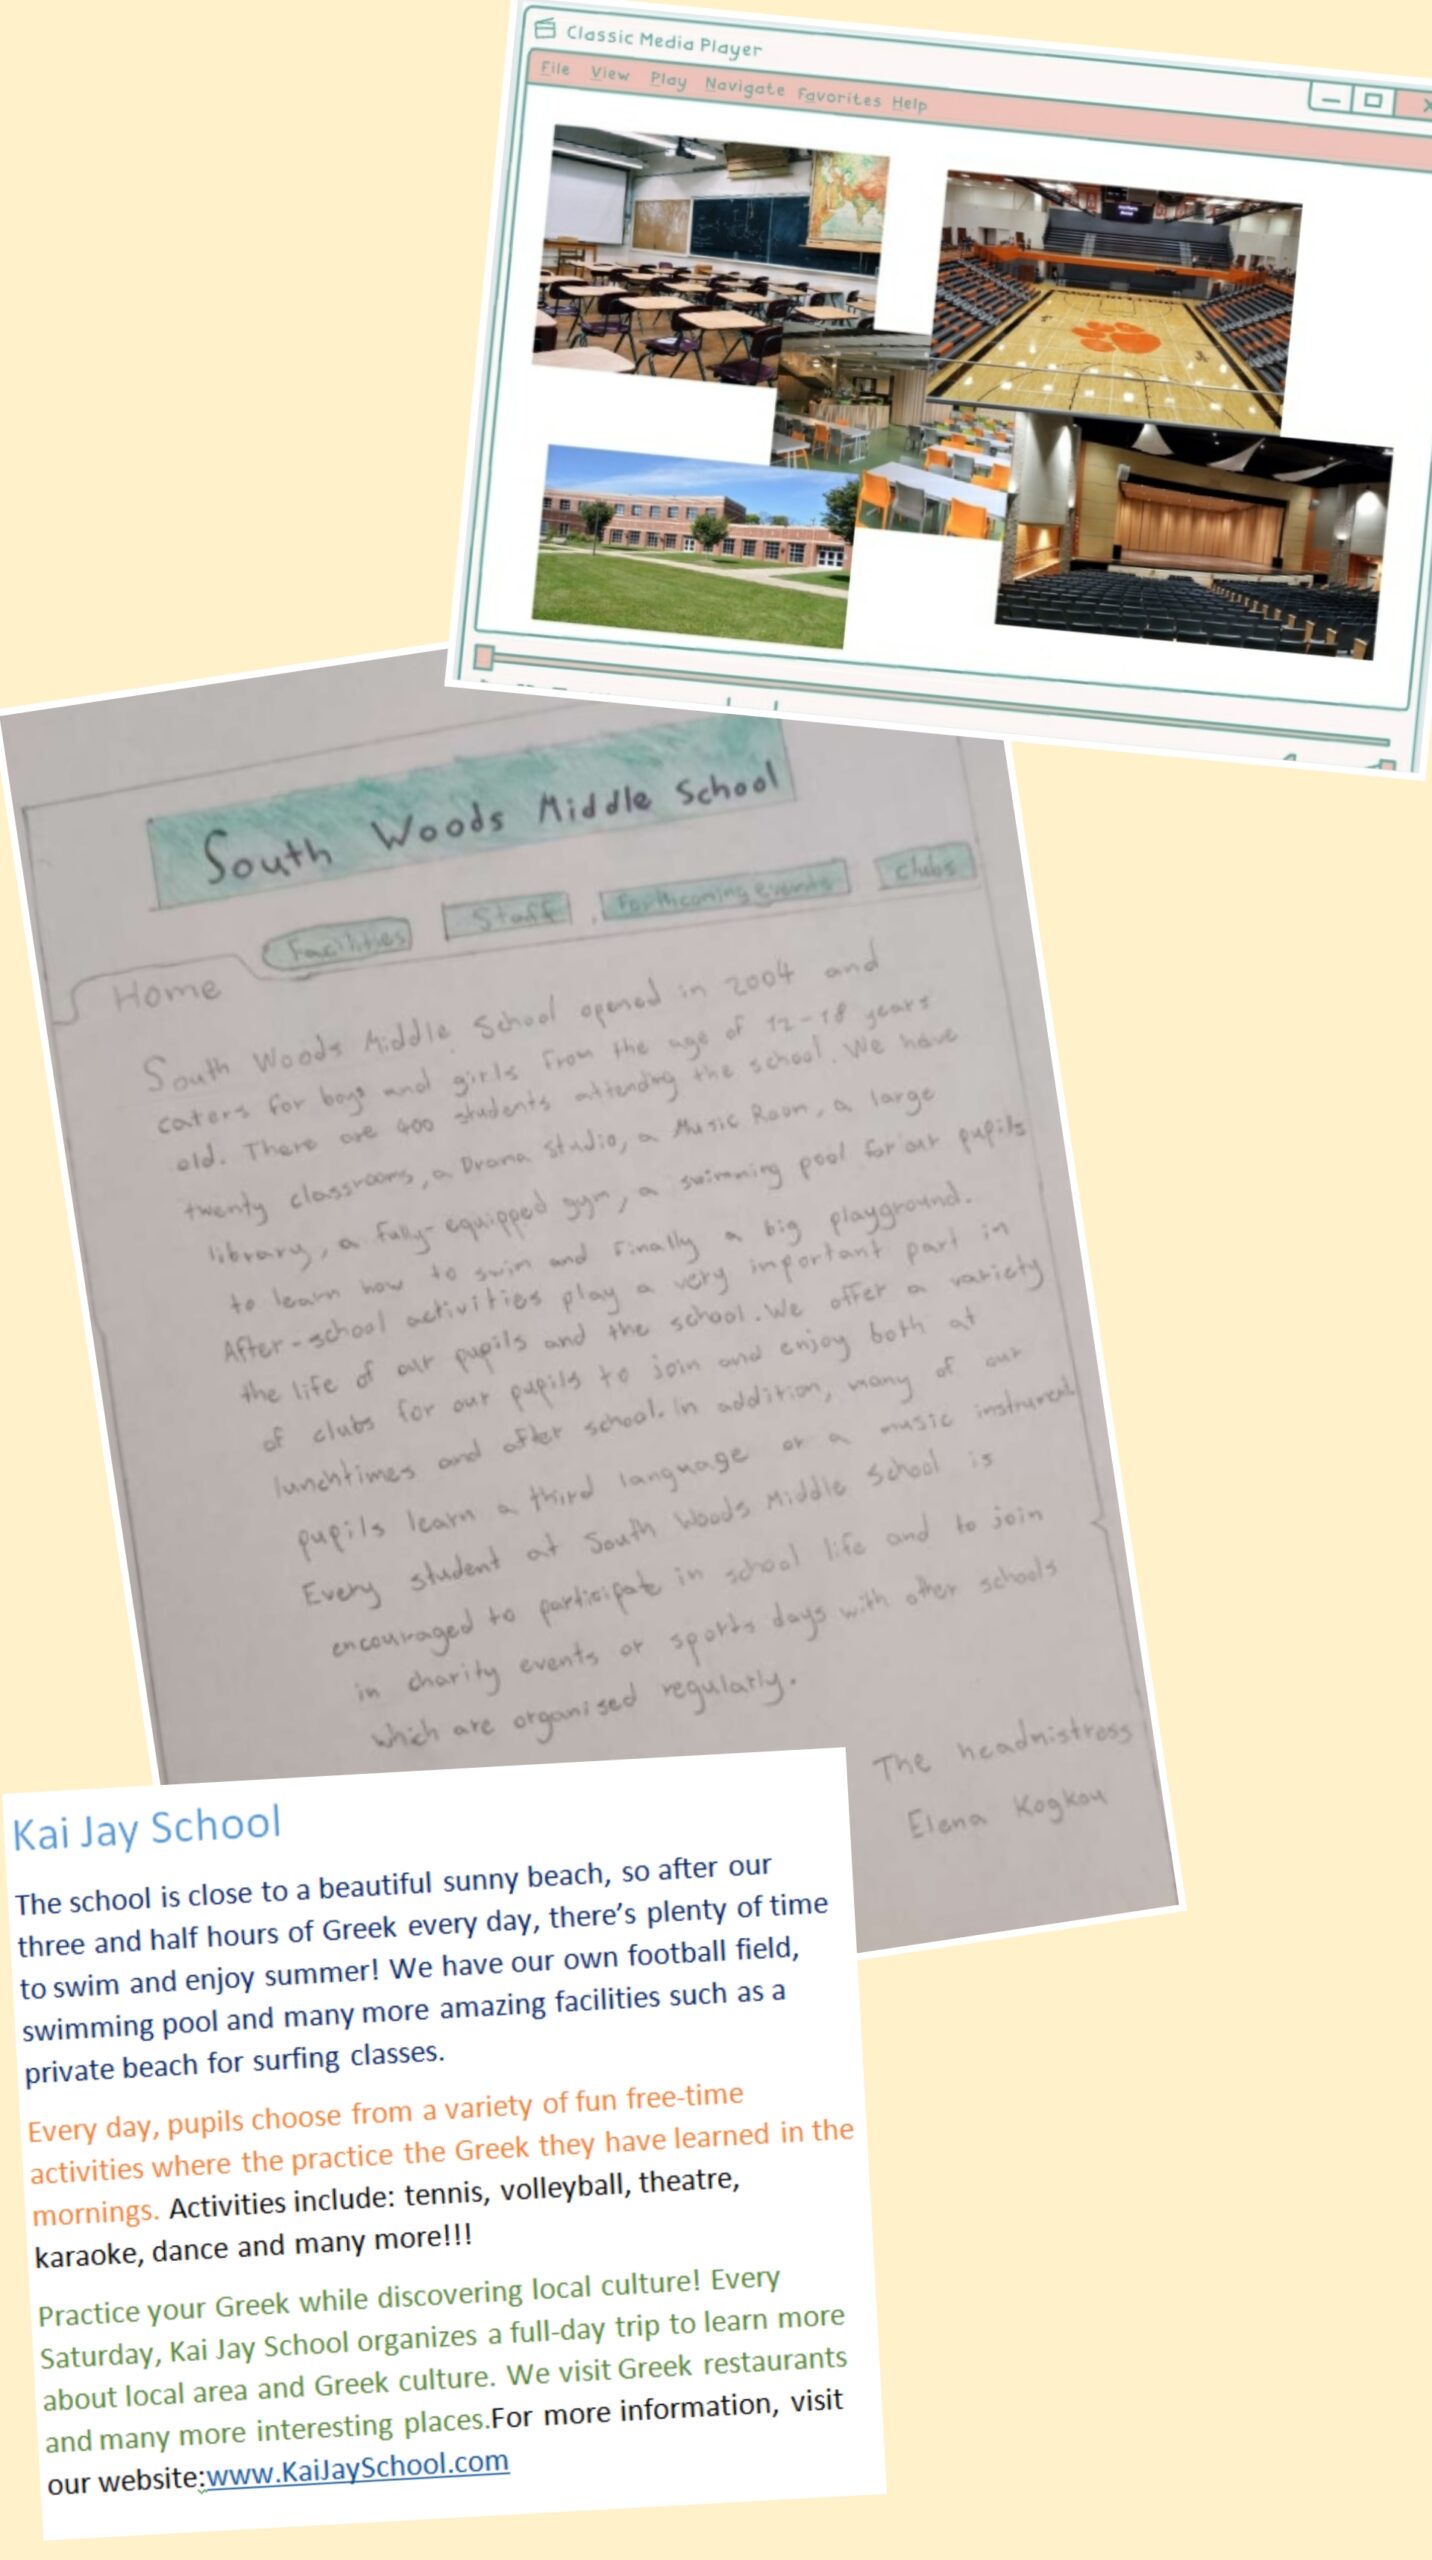 Classic Media Player
File View Play Navigate Favorites Help
South Woods Middle School
Facilities Staff Forthcoming Events Clubs
Home
South Woods Middle School opened in 2004 and
caters for boys and girls from the age of 12-18 years
old. There are 400 students attending the school. We have
twenty classrooms, a Drama Studio, a Music Room, a large
library, a fully-equipped gym, a swimming pool for our pupils
to learn how to swim and finally a big playground.
After-school activities play a very important part in
the life of our pupils and the school. We offer a variety
of clubs for our pupils to join and enjoy both at
lunchtimes and after school. In addition, many of our
pupils learn a third language or a music instrument.
Every student at South Woods Middle School is
encouraged to participate in school life and to join
in charity events or sports days with other schools
which are organised regularly.
The headmistress
Elena Kogkou
Kai Jay School
The school is close to a beautiful sunny beach, so after our
three and half hours of Greek every day, there's plenty of time
to swim and enjoy summer! We have our own football field,
swimming pool and many more amazing facilities such as a
private beach for surfing classes.
Every day, pupils choose from a variety of fun free-time
activities where the practice the Greek they have learned in the
mornings. Activities include: tennis, volleyball, theatre,
karaoke, dance and many more!!!
Practice your Greek while discovering local culture! Every
Saturday, Kai Jay School organizes a full-day trip to learn more
about local area and Greek culture. We visit Greek restaurants
and many more interesting places.For more information, visit
our website:www.KaiJaySchool.com